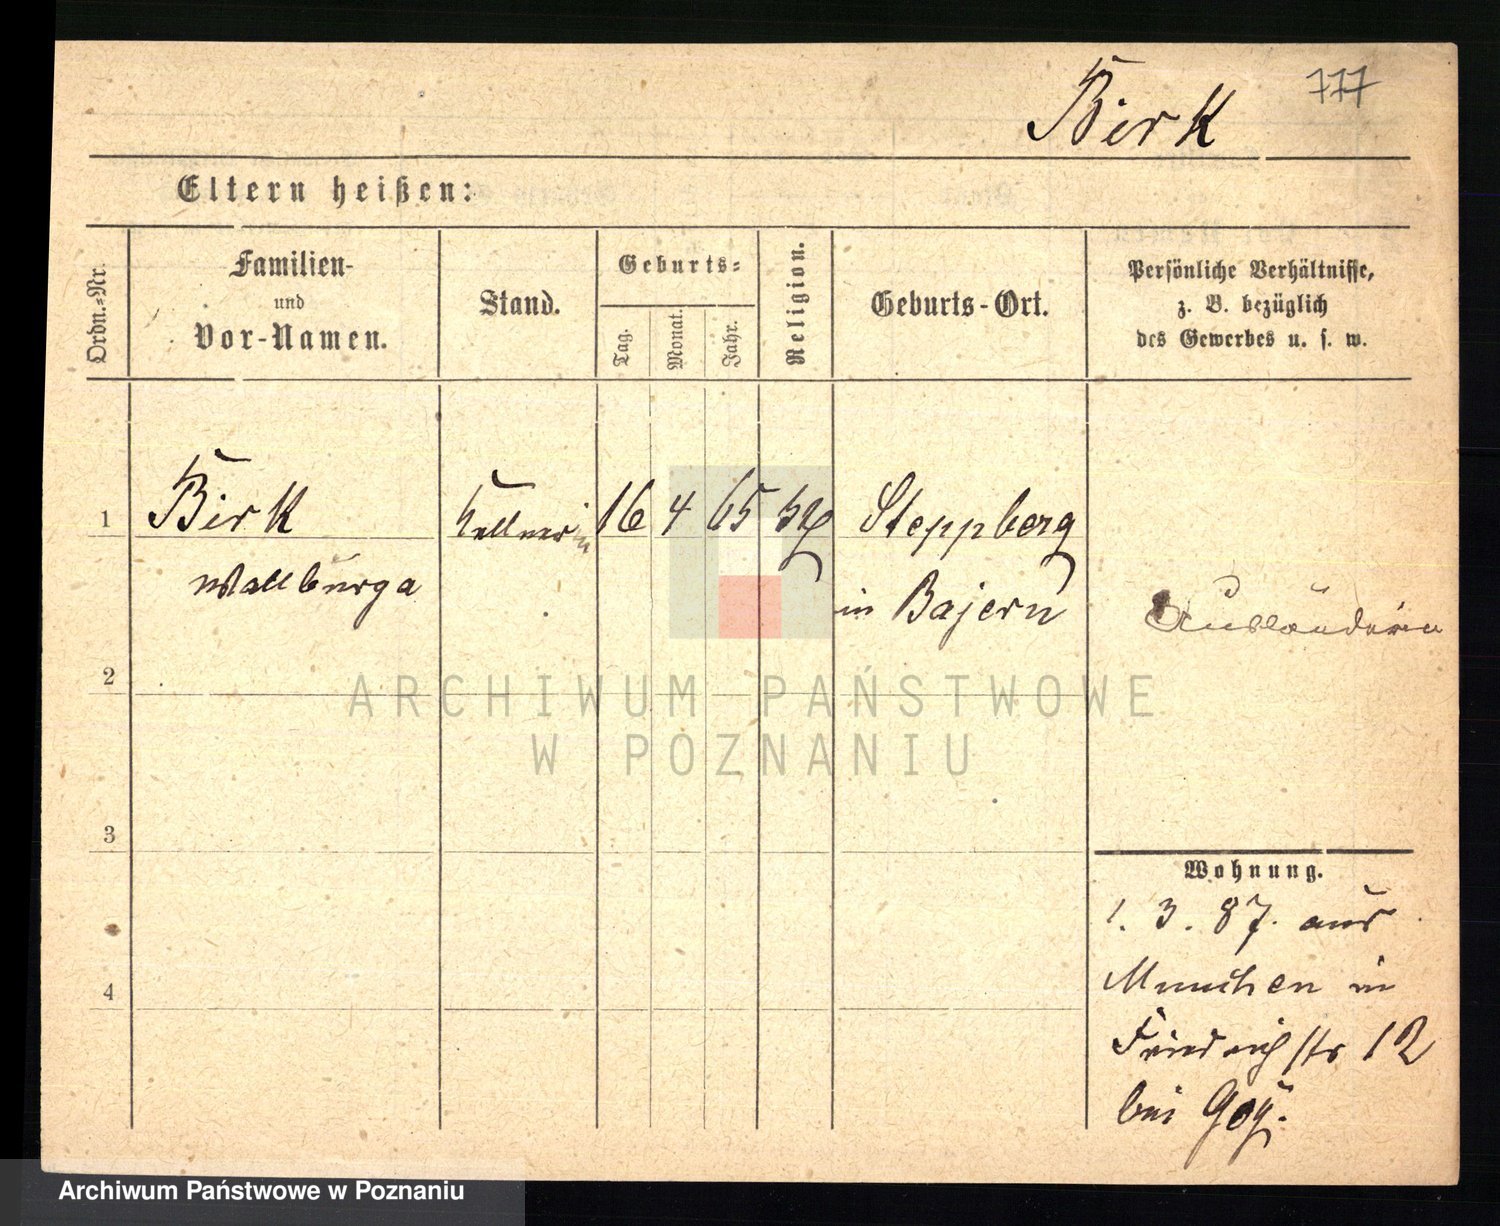 Birk
777
Eltern heißen:
Ordn.-Nr.
Familien-
und
Vor-Namen.
Stand.
Geburts-
Tag.
Monat.
Jahr.
Religion.
Geburts-Ort.
Persönliche Verhältnisse,
z. B. bezüglich
des Gewerbes u. s. w.
1 Birk Kellnerin 16 4 65 Steppberg
Wallburga in Bajern
Ausländerin
2
3
4
Wohnung.
1. 3. 87. aus
München in
Friedrichstr 12
bei
ARCHIWUM PAŃSTWOWE
W POZNANIU
Archiwum Państwowe w Poznaniu